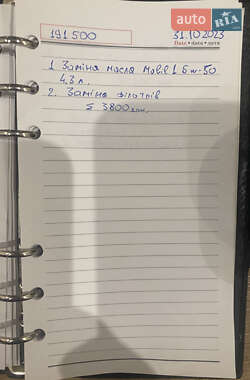 auto RIA
191 500
31.10.2023
1 Заміна масла Mobil 1 5w-50
4.3 л.
2. Заміна фільтрів
S 3800грн.